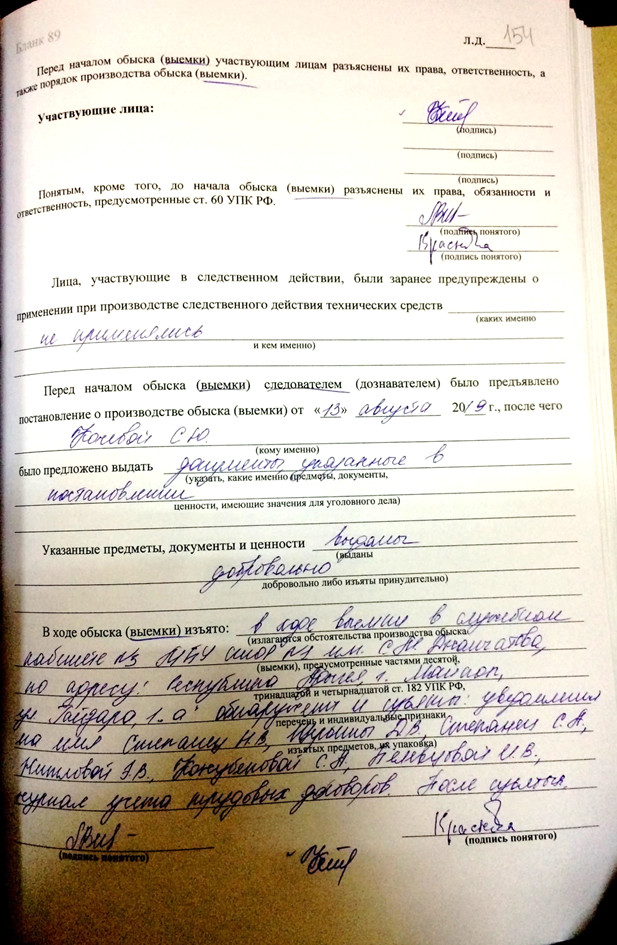 Бланк 89
Л.Д. 154
Перед началом обыска (выемки) участвующим лицам разъяснены их права, ответственность, а
также порядок производства обыска (выемки).
Участвующие лица:
(подпись)
(подпись)
(подпись)
Понятым, кроме того, до начала обыска (выемки) разъяснены их права, обязанности и
ответственность, предусмотренные ст. 60 УПК РФ.
(подпись понятого)
(подпись понятого)
Лица, участвующие в следственном действии, были заранее предупреждены о
применении при производстве следственного действия технических средств
(каких именно
не применялись
и кем именно)
Перед началом обыска (выемки) следователем (дознавателем) было предъявлено
постановление о производстве обыска (выемки) от «13» августа 2019 г., после чего
С.Ю.
(кому именно)
было предложено выдать документы, указанные в
(указать, какие именно предметы, документы,
постановлении
ценности, имеющие значения для уголовного дела)
Указанные предметы, документы и ценности выданы
(выданы
добровольно
добровольно либо изъяты принудительно)
В ходе обыска (выемки) изъято: в ходе выемки в служебном
(излагаются обстоятельства производства обыска
кабинете №3 им.
(выемки), предусмотренные частями десятой,
по адресу: Республика Адыгея, г. Майкоп,
тринадцатой и четырнадцатой ст. 182 УПК РФ,
ул. Гайдара, 1-а обнаружены и изъяты: уведомления
перечень и индивидуальные признаки
на имя Н.В., Д.В., Степанец С.А.,
изъятых предметов, их упаковка)
Э.В., С.А., И.В.,
журнал учета трудовых договоров. После изъятия
(подпись понятого)
(подпись понятого)